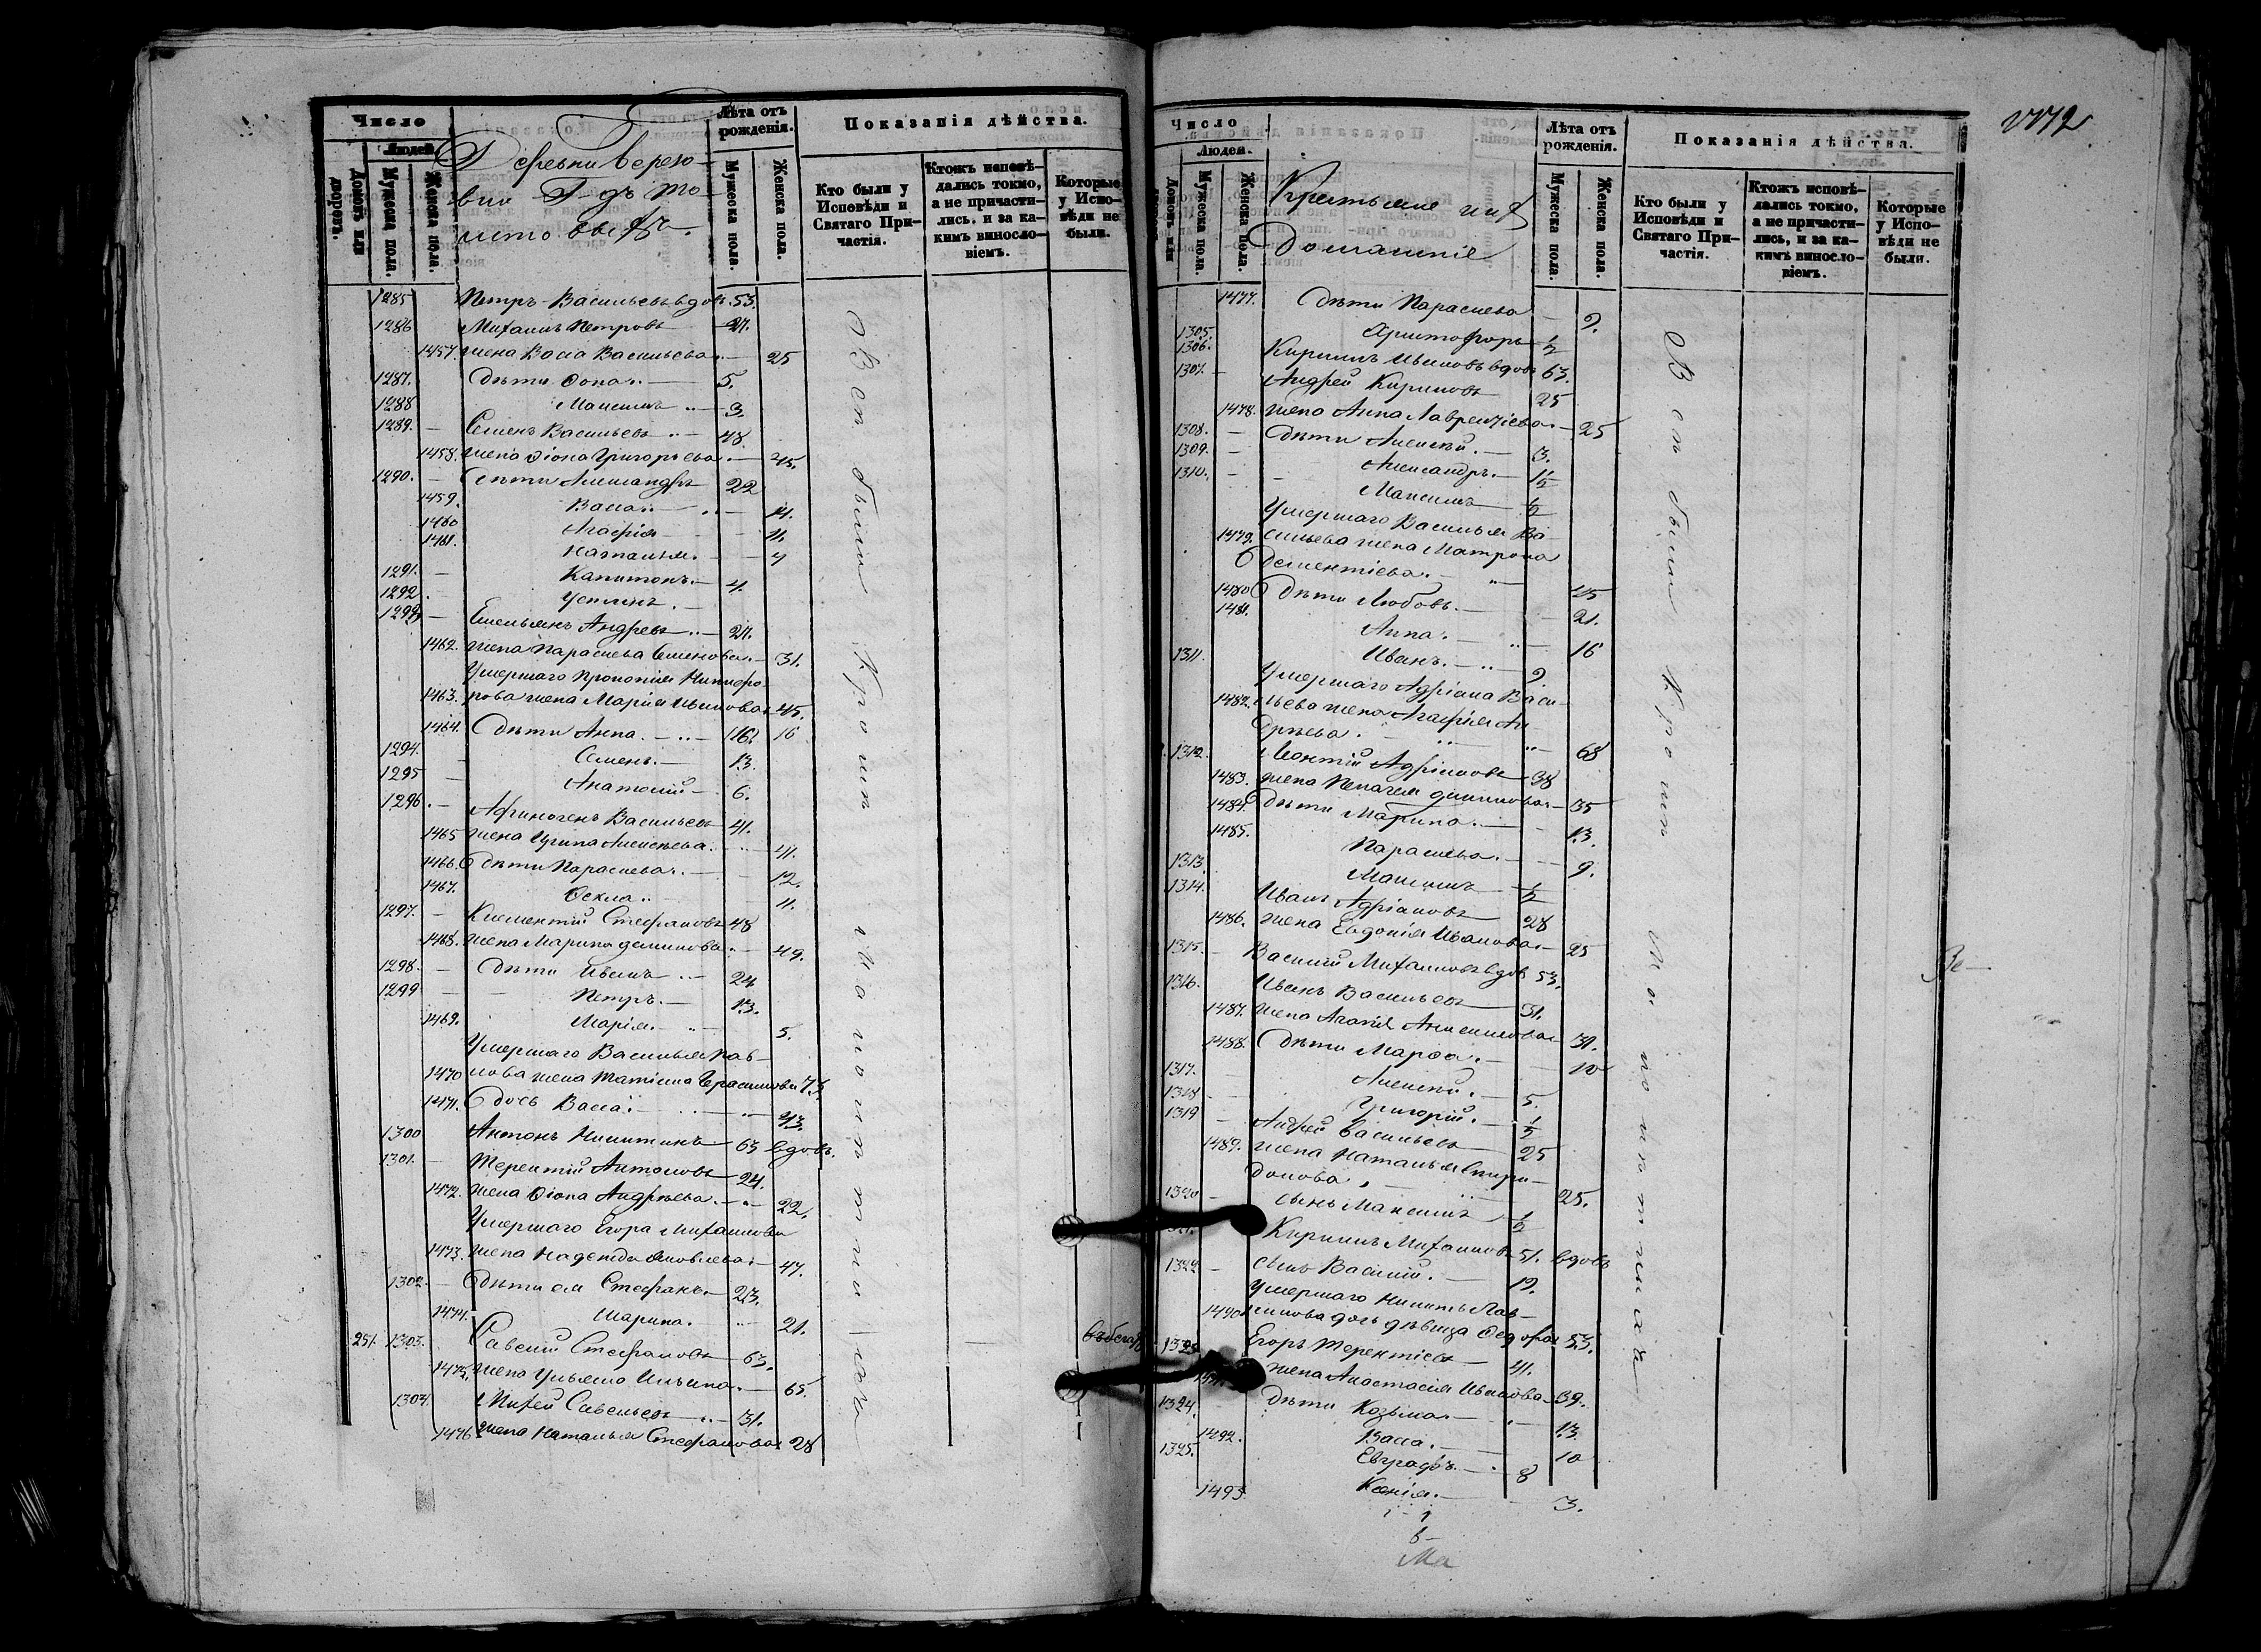 Число
Людей.
Домовъ или дворовъ.
Мужеска пола.
Женска пола.
Деревни Верею-
Г-дъ То-
Лѣта отъ рожденія.
Мужеска пола.
Женска пола.
Показанія дѣйства.
Кто были у Исповѣди и Святаго Причастія.
Ктожъ исповѣ-
дались токмо,
а не причасти-
лись, и за ка-
кимъ винословіемъ.
Которые у Исповѣди не были.
1285 Петръ Васильевъ вдов. 53.
1286 Михаилъ Петровъ 27.
1457. жена Васса Васильева 25
1287. дѣти Фока 5.
1288 Максимъ 3.
1289. Семенъ Васильевъ 48.
1458. жена Фіона Григорьева 45.
1290. дѣти Александръ 22
1459. Васса 14.
1460 Агафія 11.
1461. Наталья 7
1291. Капитонъ 4.
1292. Устинъ
1293 Емельянъ Андреевъ 24.
1462. жена Параскева Семенова 31.
Умершаго Прокопія Никифо-
1463. рова жена Марія Иванова 45.
1464. дѣти Анна 16
1294. Семенъ 13.
1295 Анатолій 6.
1296. Афиногенъ Васильевъ 41.
1465 жена Ирина Алексѣева 41.
1466. дѣти Параскева 12.
1467. Фекла 11.
1297. Климентій Стефановъ 48
1468. жена Марина 49.
1298. дѣти Иванъ 24
1299 Петръ 13.
1469. Марія 5.
Умершаго Василья Пав-
1470 лова жена Татіана Герасимова 73
1471. дочь Васса 43.
1300 Антонъ Никитинъ 63 вдовъ.
1301. Терентій Антоновъ 24.
1472. жена Фіона Андрѣева 22.
Умершаго Егора Михайлова
1473. жена Надежда Яковлева 47.
1302. дѣти ея Стефанъ 23.
1474. Марина 21.
251. 1303. Савелій Стефановъ 63.
1475. жена Ульяна Ильина 65.
1304. Михей Савельевъ 31.
1476 жена Наталья Стефанова 28
Всѣ были
Кромѣ
малолѣтныхъ
Число
Людей.
Домовъ или
Мужеска пола.
Женска пола.
Крестьяне ихъ
домашніе
Лѣта отъ рожденія.
Мужеска пола.
Женска пола.
Показанія дѣйства.
Кто были у Исповѣди и Святаго Причастія.
Ктожъ исповѣ-
дались токмо,
а не причасти-
лись, и за ка-
кимъ винословіемъ.
Которые у Исповѣди не были.
1477. дѣти Параскева 9.
1305. Христофоръ 1/2
1306. Кириллъ Ивановъ вдовъ 63.
1307. Андрей Кириловъ 25
1478. жена Анна Лаврентіева 25
1308. дѣти Алексѣй 3.
1309. Александръ 1 1/2
1310. Максимъ 1/2
Умершаго Василья Ва-
1479. сильева жена Матрона
Дементіева 45
1480 дѣти Любовь 21.
1481. Анна 16
1311. Иванъ 9.
Умершаго Адріана Васи-
1482. льева жена Агафія Ан-
дрѣева 68
1312. Леонтій Адріановъ 38
1483. жена Пелагея 35
1484. дѣти Марина 13.
1485. Параскева 9.
1313. Максимъ 1/2
1314. Иванъ Адріановъ 28
1486. жена Евдокія Иванова 25
1315. Василій Михайловъ вдов. 53.
1316. Иванъ Васильевъ 31.
1487. жена Агапія 31.
1488. дѣти Марфа 10
1317. Алексѣй 5.
1318 Григорій 1/2
1319 Андрей Васильевъ 25
1489. жена Наталья Спири-
донова 25.
1320 сынъ Максимъ 1/2
Кириллъ Михайловъ 51. вдовъ
1322 сынъ Василій 12.
Умершаго Никиты Пав-
1490 лова дочь дѣвица Федора 53.
Егоръ Терентіевъ 41.
жена Анастасія Иванова 39.
1324. дѣти Козьма 13.
1492. Васса 10
1325. Евграфъ 8
1493. Ксенія 3.
Всѣ были
Кромѣ
Малолѣтнихъ
Ма